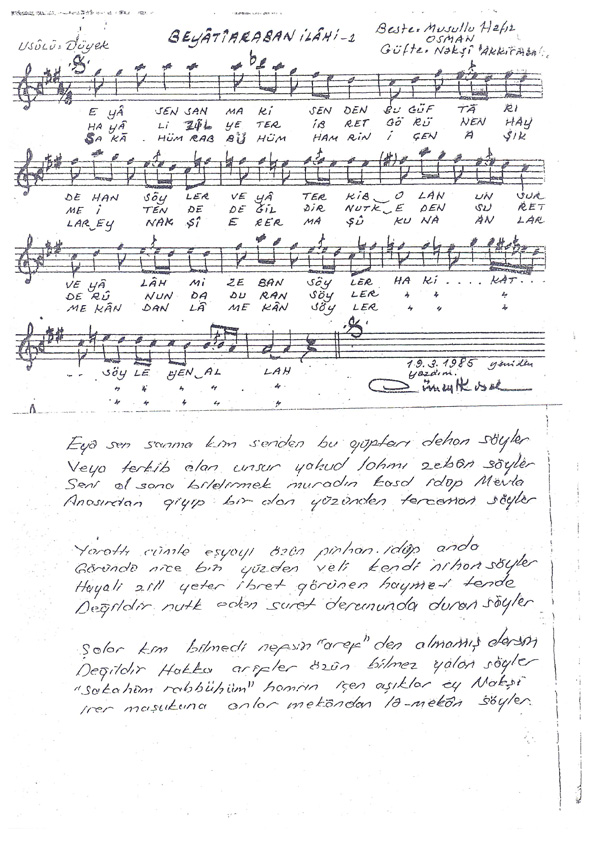 Usûlü: Düyek
BEYÂTÎARABAN İLÂHİ-2
Beste: Musullu Hafız
OSMAN
Güfte: Nakşî Akkirmâni
E YÂ SEN SAN MA Kİ SEN DEN BU GÜF TÂ RI
HA YÂ Lİ ZIL YE TER İB RET GÖ RÜ NEN HAY
SA KÂ HÜM RAB BÜ HÜM HAM RİN İ ÇEN A ŞIK
DE HAN SÖY LER VE YÂ TER KİB O LAN UN SUR
ME İ TEN DE DE GİL DİR NUTK E DEN SU RET
LAR EY NAK ŞÎ E RER MA ŞÛ KU NA AN LAR
VE YÂ LÂH MI ZE BAN SÖY LER HA Kİ .... KAT ....
DE RÛ NUN DA DU RAN SÖY LER " " "
ME KÂN DAN LÂ ME KÂN SÖY LER " " "
SÖY LE YEN AL LAH
" " " " "
" " " " "
19.3.1985 yeniden
yazdım.
Eya sen sanma kim senden bu güftarı dehan söyler
Veya terkib olan unsur yahud lahmı zebân söyler
Seni ol sana bildirmek muradın kasd idüp Mevla
Anasırdan giyip bir don yüzünden terceman söyler
Yarattı cümle eşyayı özün pinhan idüp anda
Göründü nice bin yüzden veli kendi nihan söyler
Hayali zıll yeter ibret görünen hayme-i tende
Değildir nutk eden suret derununda duran söyler
Şolar kim bilmedi nefsin "aref" den almamış dersin
Değildir Hakka arifler özün bilmez yalan söyler
"Sakahüm rabbühüm" hamrın içen aşıklar ey Nakşi
Irer maşukuna anlar mekândan lâ-mekân söyler.